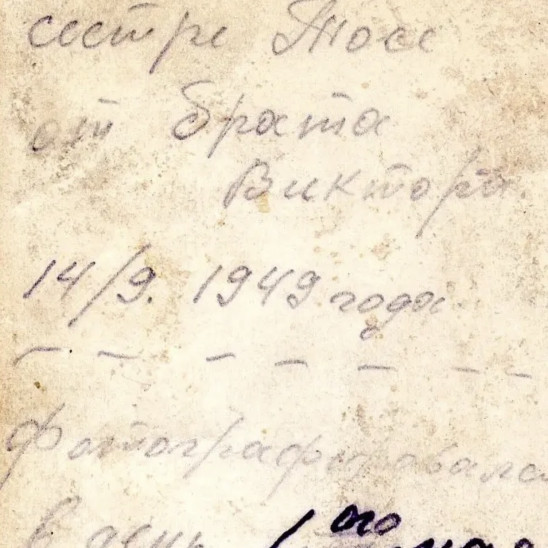 сестре Тосе
от брата
Виктора
14/9. 1949 года
- - - - - - -
фотографировался
в день 1ого мая